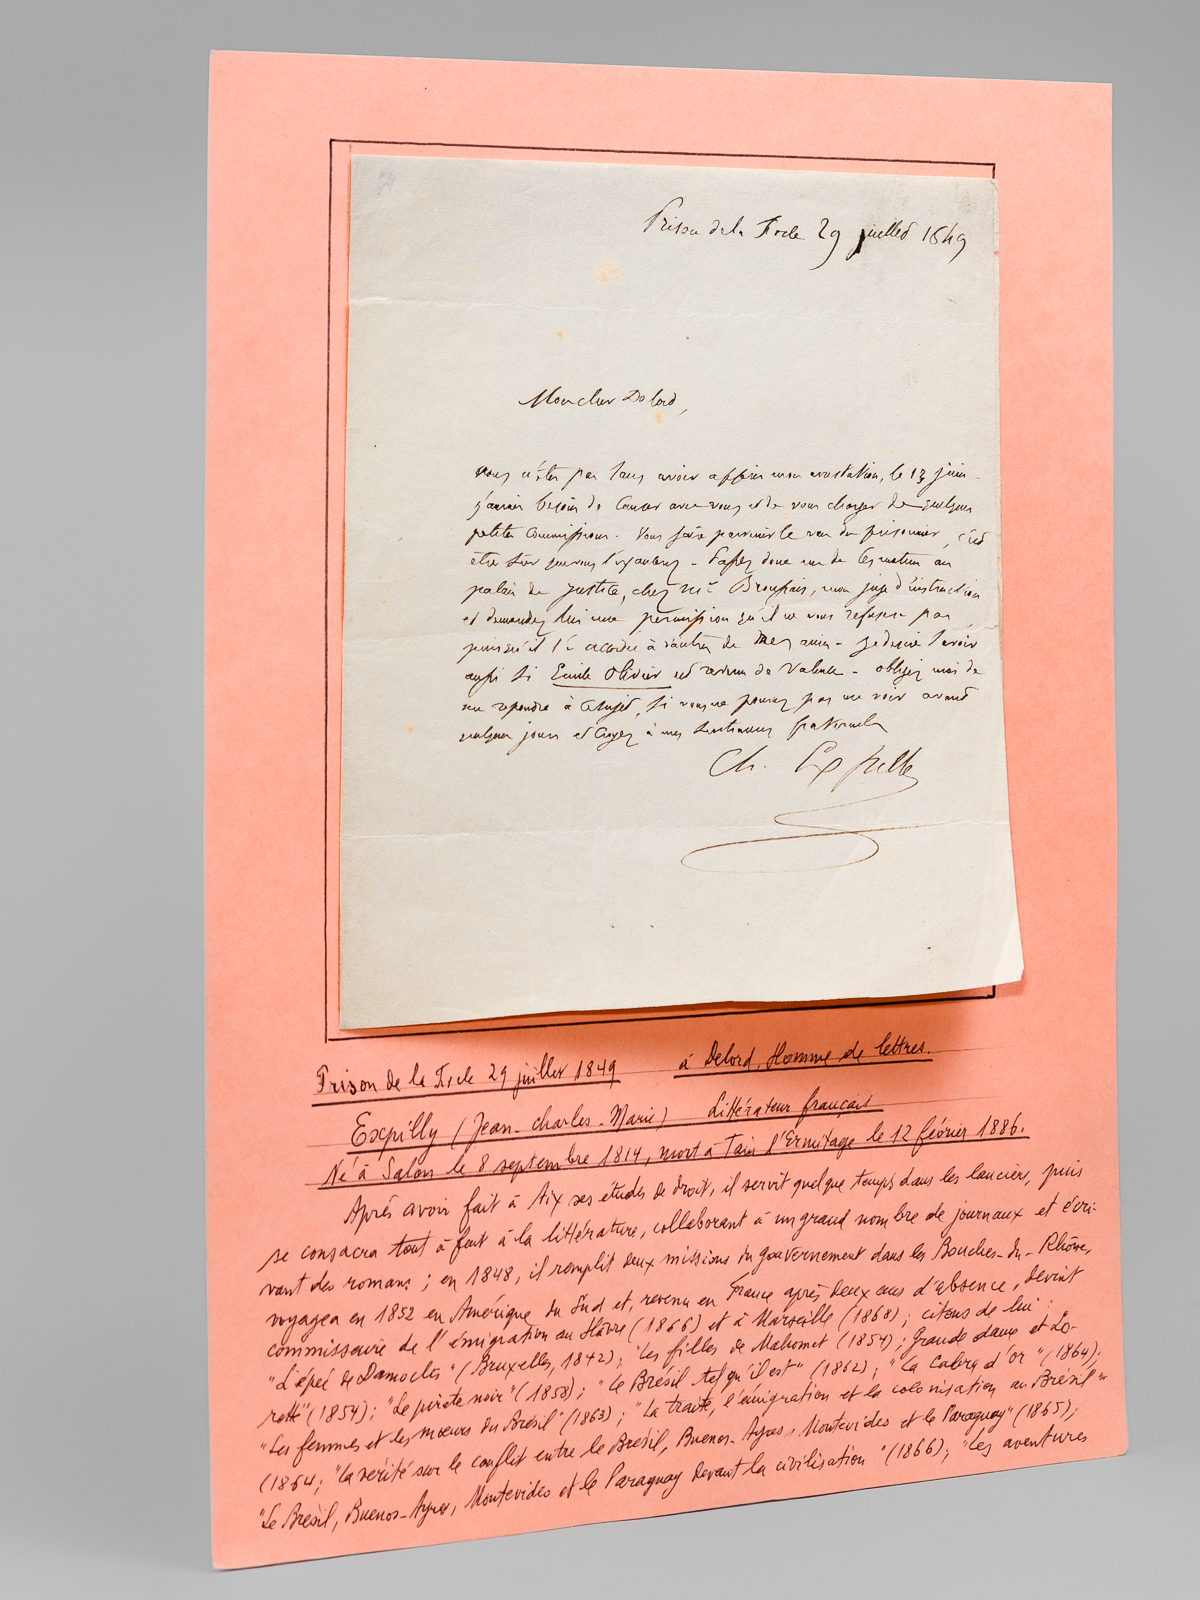 Prison de la Force 29 juillet 1849
Mon cher Delord,
vous n'êtes pas sans avoir appris mon arrestation, le 13 juin
j'aurais besoin de causer avec vous et de vous charger de quelques
petites commissions. Vous faire parvenir le vœu du prisonnier, c'est
être sûr que vous l'exaucerez. Passez donc un de ces matins au
palais de justice, chez Mr Broussais, mon juge d'instruction
et demandez lui une permission qu'il ne vous refusera pas
puisqu'il l'a accordée à d'autres de mes amis. je désire savoir
aussi si Emile Olivier est revenu de Valence. obligez moi de
me répondre à ce sujet, si vous ne pouvez pas me voir avant
quelques jours et croyez à mes sentiments fraternels
Ch. Expilly
Prison de la Force 29 juillet 1849 à Delord, Homme de lettres.
Expilly (Jean-Charles-Marie) Littérateur français
Né à Salon le 8 septembre 1814, mort à Tain l'Ermitage le 12 février 1886.
Après avoir fait à Aix ses études de droit, il servit quelque temps dans les lanciers, puis
se consacra tout à fait à la littérature, collaborant à un grand nombre de journaux et écri-
vant des romans ; en 1848, il remplit deux missions du gouvernement dans les Bouches-du-Rhône,
voyagea en 1852 en Amérique du Sud et, revenu en France après deux ans d'absence, devint
commissaire de l'émigration au Hâvre (1866) et à Marseille (1868) ; citons de lui :
"L'épée de Damoclès" (Bruxelles, 1842) ; "Les filles de Mahomet (1854) ; Grande dame et Lo-
rette" (1854) ; "Le pirate noir" (1858) ; "Le Brésil tel qu'il est" (1862) ; "La Cabra d'or" (1864) ;
"Les femmes et les mœurs du Brésil" (1863) ; "La traite, l'émigration et la colonisation au Brésil"
(1864 ; "La vérité sur le conflit entre le Brésil, Buenos-Ayres, Montevideo et le Paraguay" (1865) ;
"Le Brésil, Buenos-Ayres, Montevideo et le Paraguay devant la civilisation" (1866) ; "Les aventures